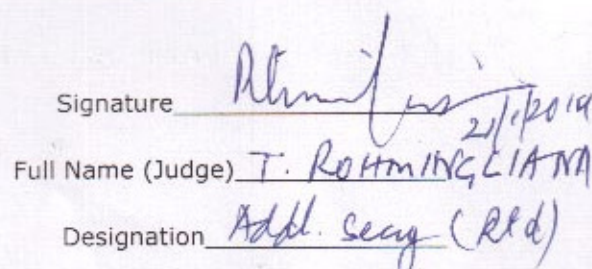 Signature
Full Name (Judge) T. ROHMINGLIANA
Designation Addl. Secy (Rtd)